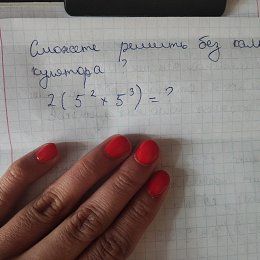 Сможете решить без каль
кулятора ?
2 ( 5² × 5³ ) = ?